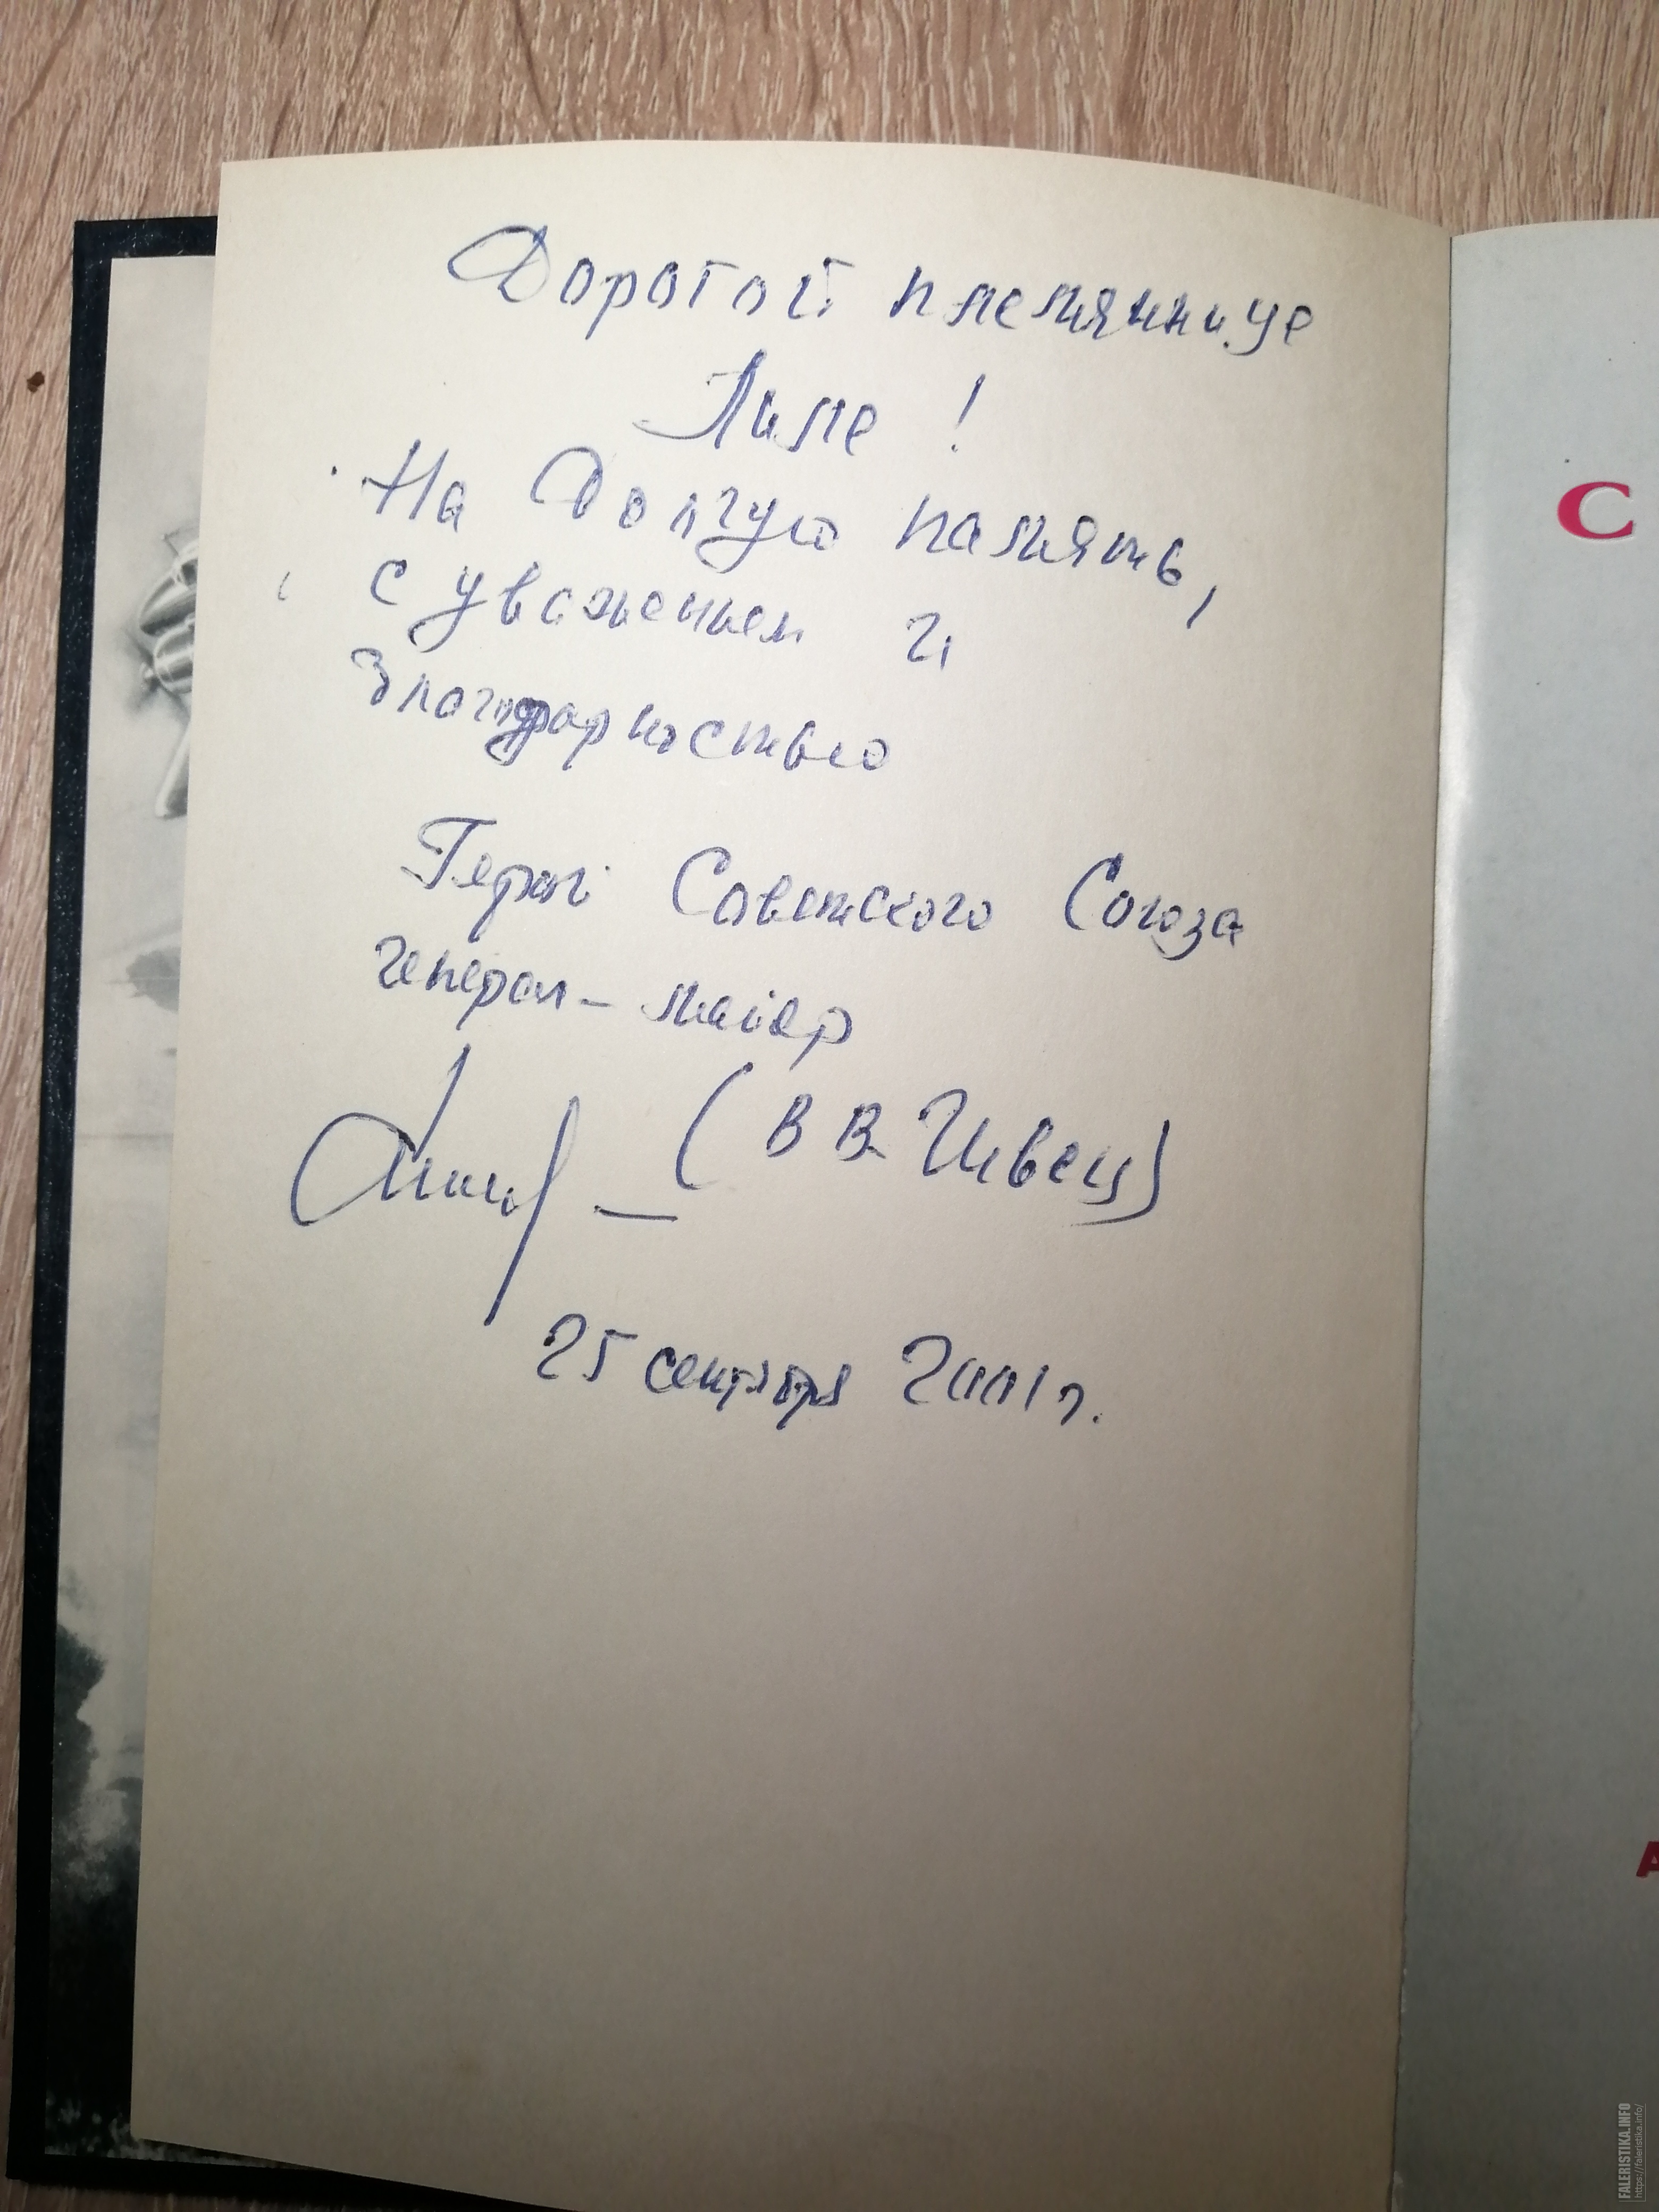 Дорогой племяннице
Лиле !
На Долгую память,
с уваженьем и
благодарностью
Герой Советского Союза
генерал - майор
(В В. Швец)
25 сентября 2001 г.
С
А
FALERISTIKA.INFO
https://faleristika.info/